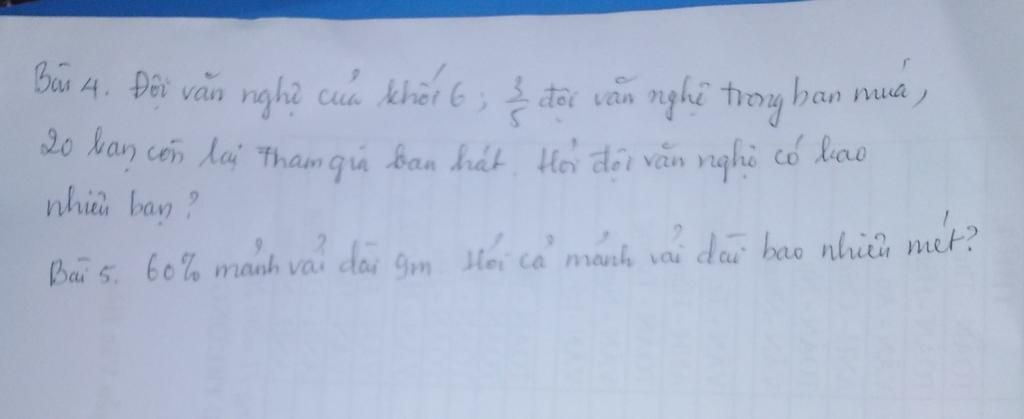 Bài 4. Đội văn nghệ của khối 6; 3/5 đội văn nghệ trong ban múa,
20 bạn còn lại tham gia ban hát. Hỏi đội văn nghệ có bao
nhiêu bạn?
Bài 5. 60% mảnh vải dài 9m. Hỏi cả mảnh vải dài bao nhiêu mét?